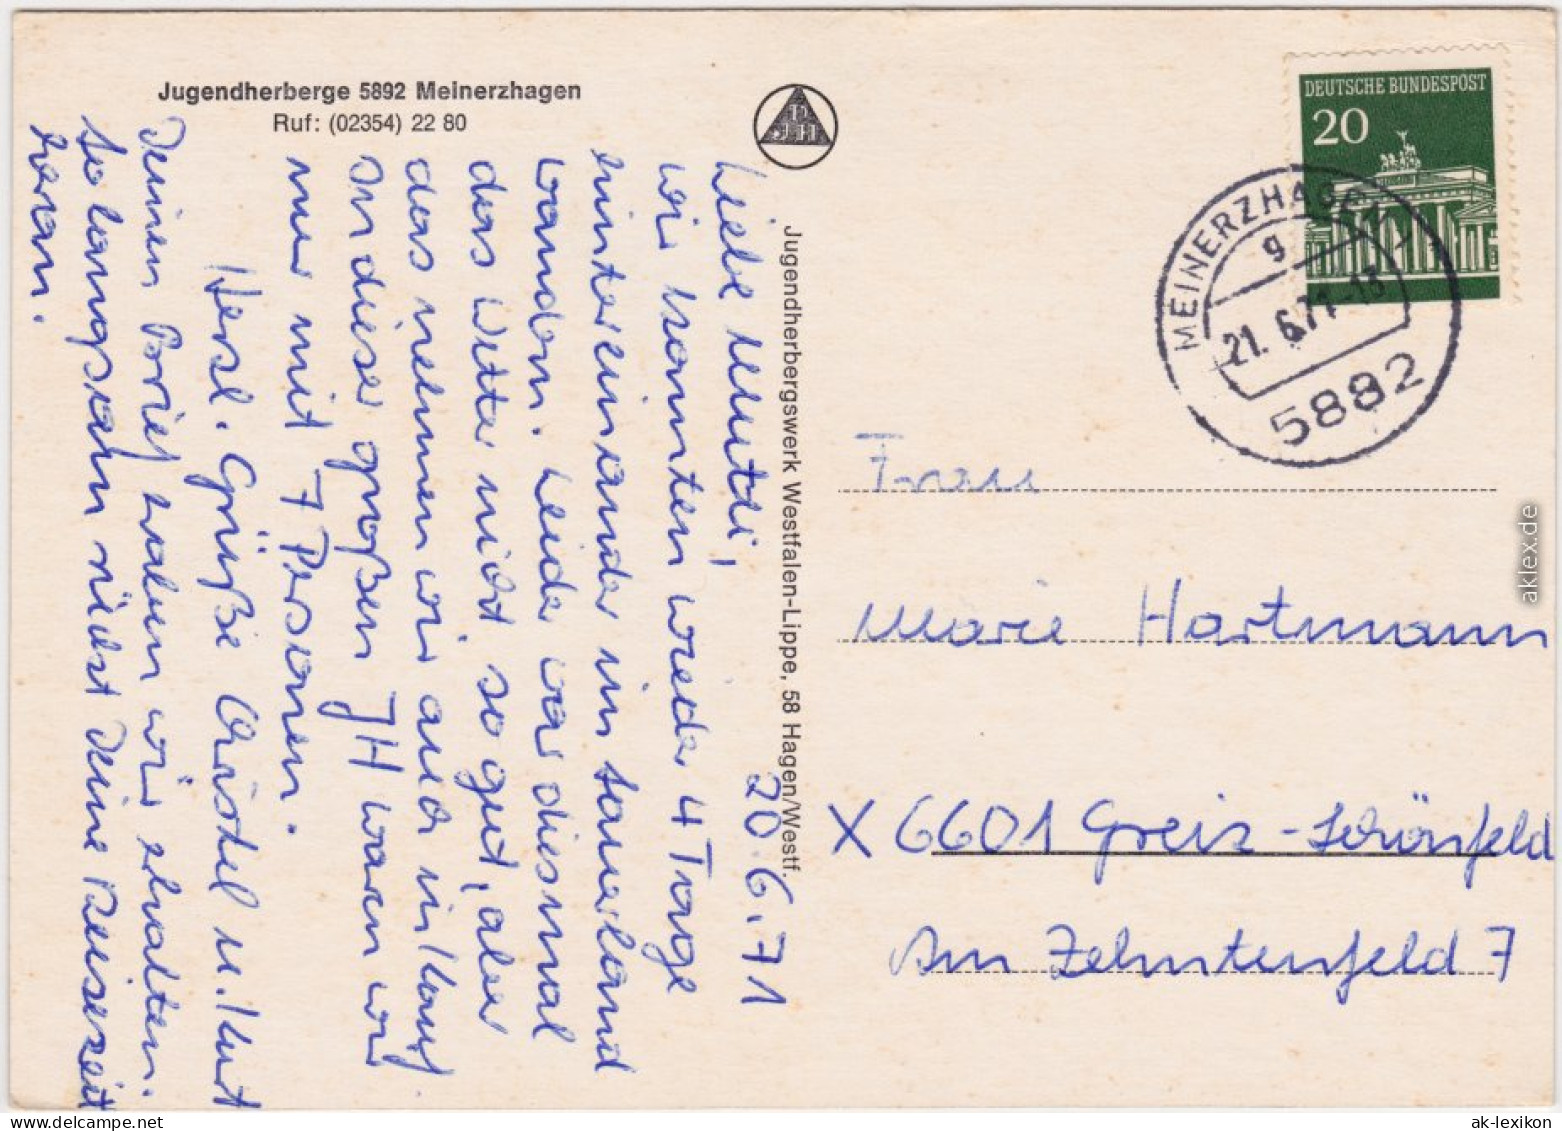 Jugendherberge 5892 Meinerzhagen
Ruf: (02354) 22 80
DJH
Jugendherbergswerk Westfalen-Lippe, 58 Hagen/Westf.
DEUTSCHE BUNDESPOST
20
MEINERZHAGEN 1
g
21. 6.71-13
5882
20.6.71
Liebe Mutti,
wir konnten wieder 4 Tage
hintereinander im Sauerland
wandern. Leider war diesmal
das Wetter nicht so gut, aber
das nehmen wir auch in Kauf.
In dieser großen JH waren wir
nur mit 7 Personen.
Herzl. Grüße Christel u. Kurt
Deinen Brief haben wir erhalten.
So langsam rückt Deine Reisezeit
heran.
Frau
Marie Hartmann
X 6601 Greiz-Schönfeld
Am Zehntenfeld 7
aklex.de
ak-lexikon